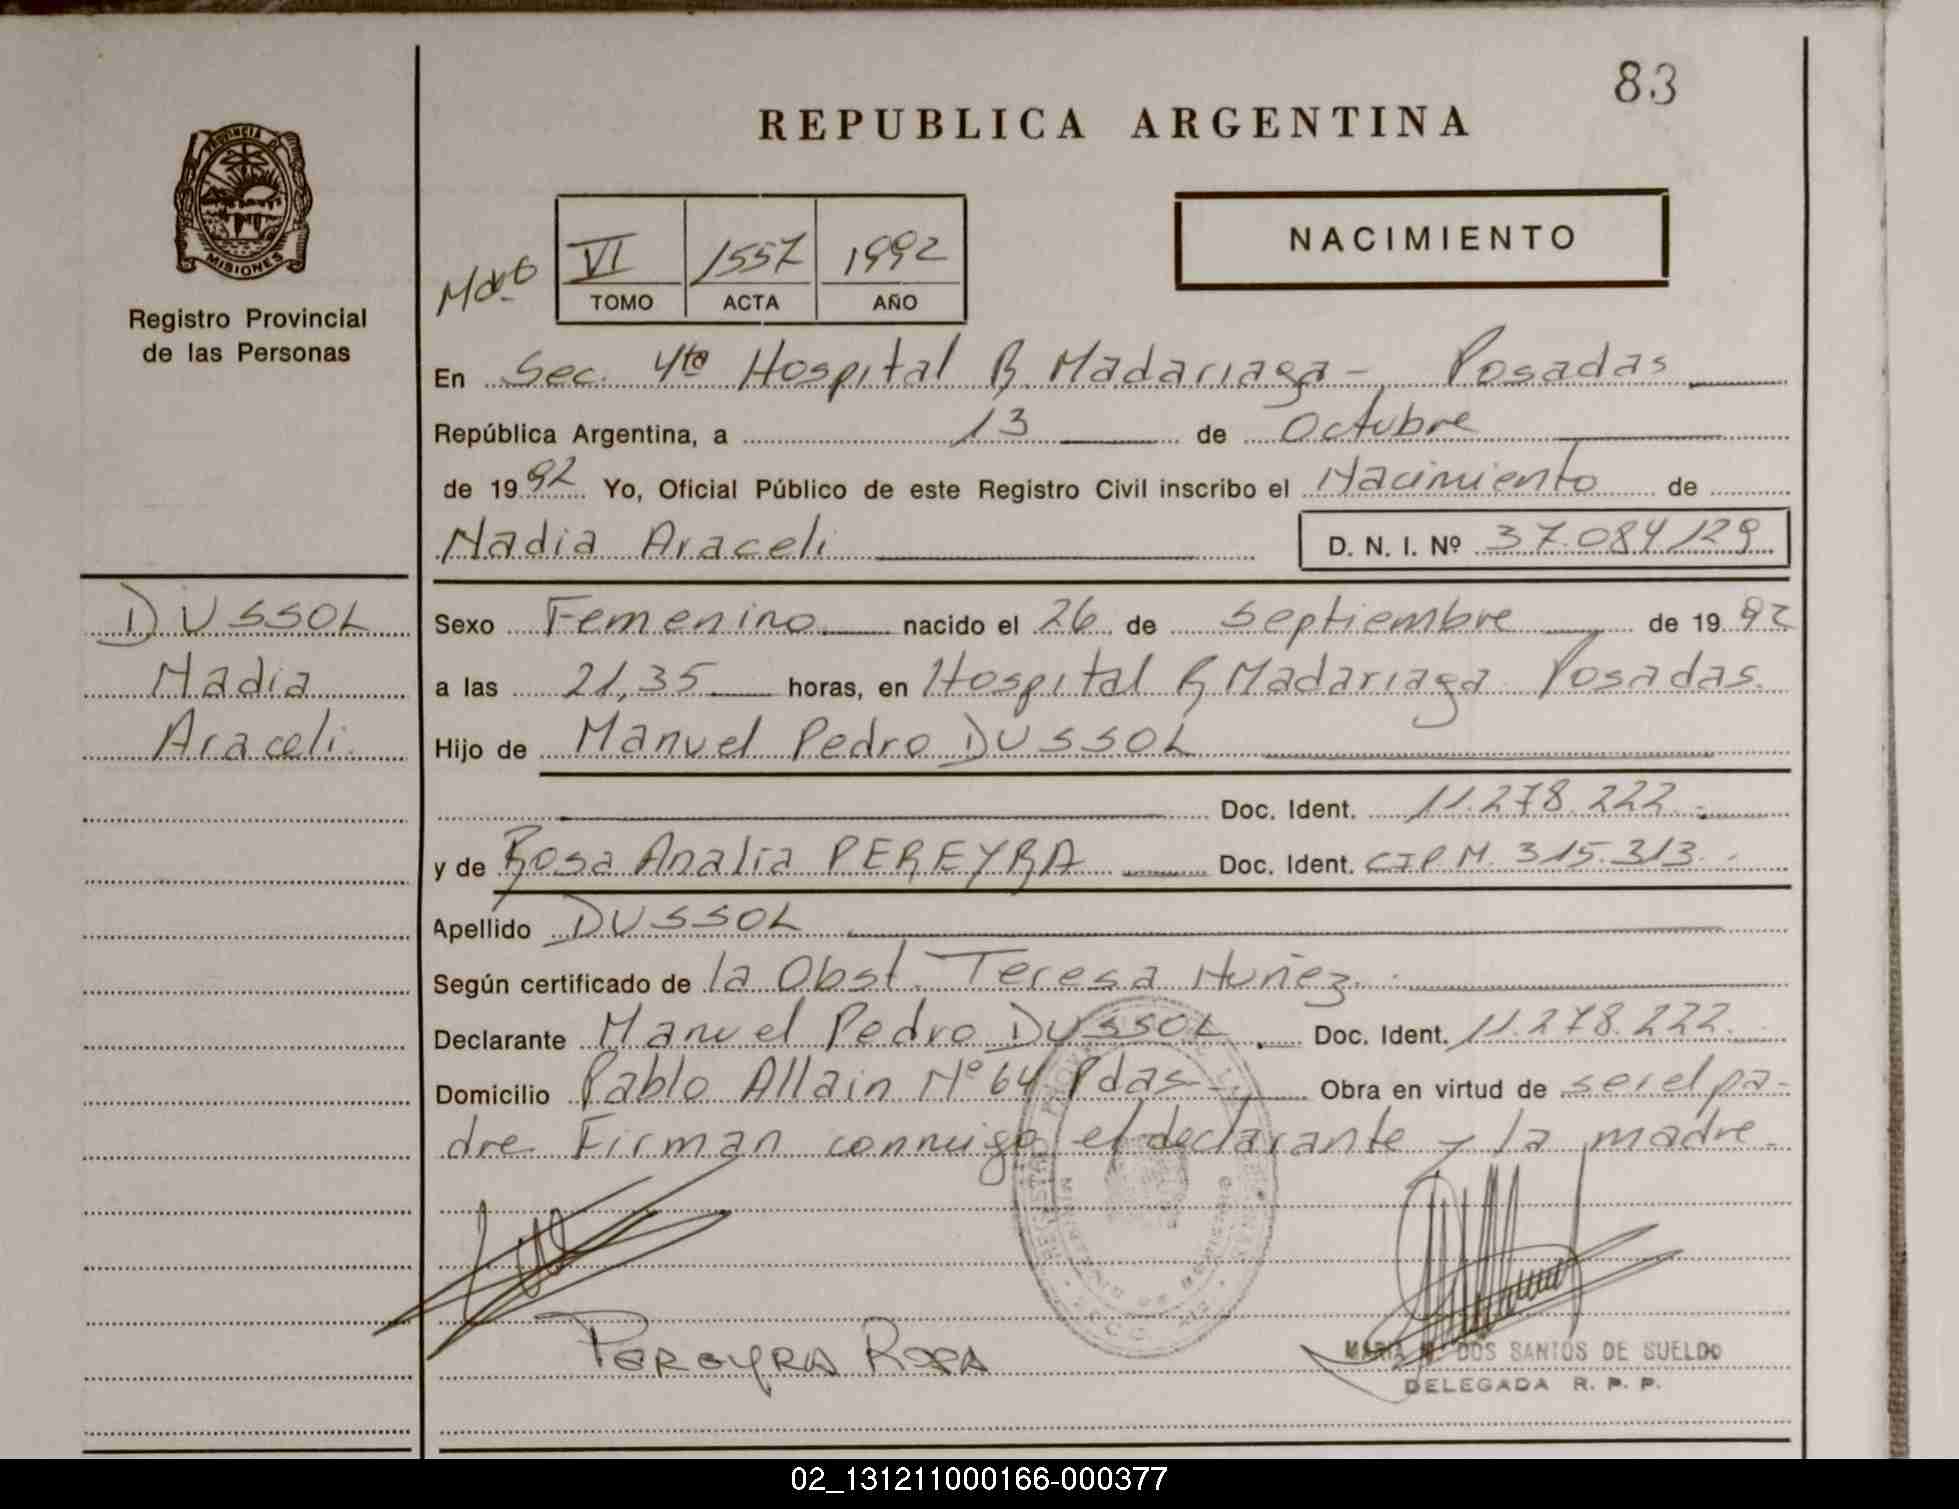 83
REPUBLICA ARGENTINA
PROVINCIA DE
MISIONES
Registro Provincial
de las Personas
NACIMIENTO
VI 1557 1992
TOMO ACTA AÑO
En Sec. 4ta Hospital R. Madariaga - Posadas
República Argentina, a 13 de Octubre
de 1992 Yo, Oficial Público de este Registro Civil inscribo el Nacimiento de
Nadia Araceli D. N. I. Nº 37.084129
DUSSOL
Nadia
Araceli.
Sexo Femenino nacido el 26 de Septiembre de 1992
a las 21,35 horas, en Hospital R. Madariaga Posadas.
Hijo de Manuel Pedro DUSSOL
Doc. Ident. 11.278.222.-
y de Rosa Analia PEREYRA Doc. Ident. CIPM. 315.313.-
Apellido DUSSOL
Según certificado de la Obst. Teresa Nuñez.
Declarante Manuel Pedro DUSSOL. Doc. Ident. 11.278.222.
Domicilio Pablo Allain Nº 64 Pdas- Obra en virtud de ser el pa-
dre. Firman conmigo el declarante y la madre.
PEREYRA ROSA
MARIA DOS SANTOS DE SUELDO
DELEGADA R. P. P.
02_131211000166-000377